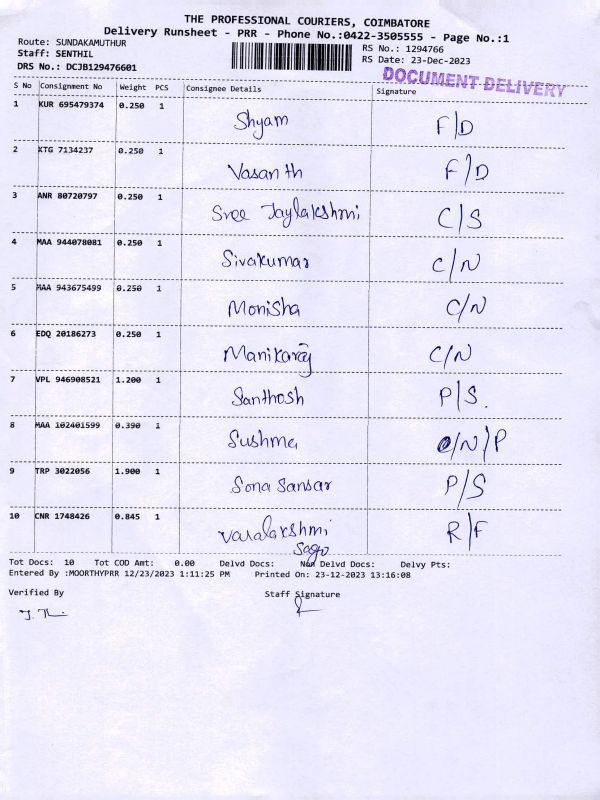 THE PROFESSIONAL COURIERS, COIMBATORE
Delivery Runsheet - PRR - Phone No.:0422-3505555 - Page No.:1
Route: SUNDAKAMUTHUR
Staff: SENTHIL
DRS No.: DCJB129476601
RS No.: 1294766
RS Date: 23-Dec-2023
DOCUMENT DELIVERY
S No Consignment No Weight PCS Consignee Details Signature
1 KUR 695479374 0.250 1 Shyam F/D
2 KTG 7134237 0.250 1 Vasanth F/D
3 ANR 80720797 0.250 1 Sree Jaylakshmi C/S
4 MAA 944078081 0.250 1 Sivakumar C/N
5 MAA 943675499 0.250 1 Monisha C/N
6 EDQ 20186273 0.250 1 Manikaraj C/N
7 VPL 946908521 1.200 1 Santhosh P/S.
8 MAA 102401599 0.390 1 Sushma C/N/P
9 TRP 3022056 1.900 1 Sona Sansar P/S
10 CNR 1748426 0.845 1 Varalakshmi R/F
Sago
Tot Docs: 10 Tot COD Amt: 0.00 Delvd Docs: Non Delvd Docs: Delvy Pts:
Entered By :MOORTHYPRR 12/23/2023 1:11:25 PM Printed On: 23-12-2023 13:16:08
Verified By Staff Signature